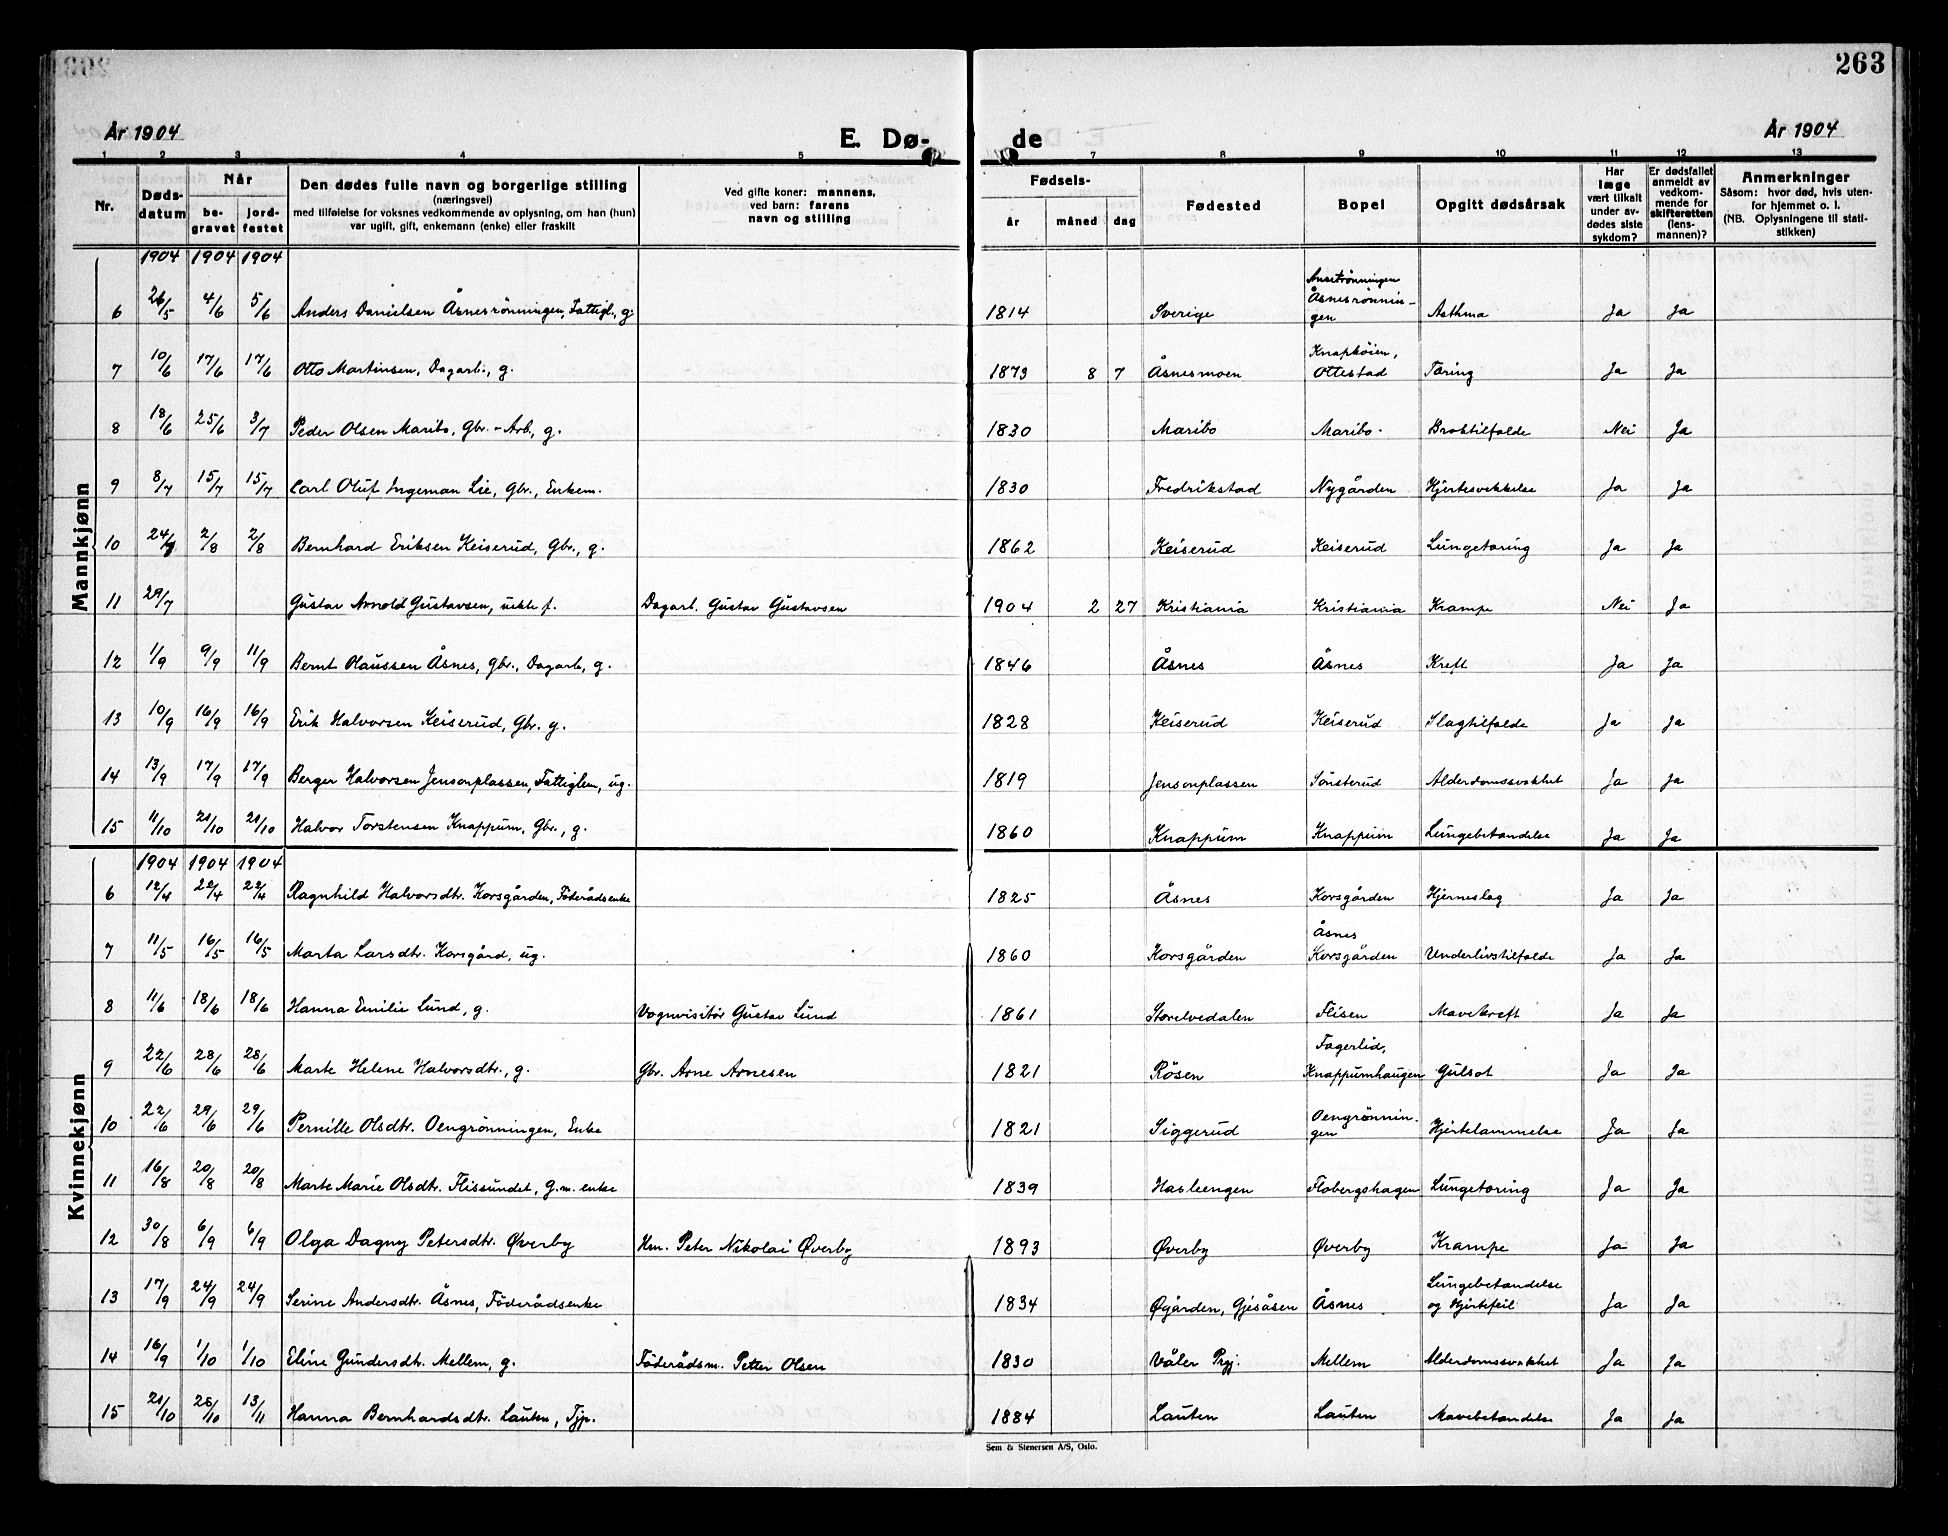 263
År 1904
E. Dø-
de
År 1904
1 2 3 4 5 7 8 9 10 11 12 13
Nr. Døds-datum Når be-gravet jord-festet
Den dødes fulle navn og borgerlige stilling
(næringsvei)
med tilføielse for voksnes vedkommende av oplysning, om han (hun)
var ugift, gift, enkemann (enke) eller fraskilt
Ved gifte koner: mannens,
ved barn: farens
navn og stilling
Fødsels-
år måned dag
Fødested
Bopel
Opgitt dødsårsak
Har læge vært tilkalt under av-dødes siste sykdom?
Er dødsfallet anmeldt av vedkom-mende for skifteretten (lens-mannen)?
Anmerkninger
Såsom: hvor død, hvis uten-for hjemmet o. l.
(NB. Oplysningene til stati-stikken)
Mannkjønn
1904 1904 1904
6 26/5 4/6 5/6 Anders Danielsen Åsnesrönningen, Fattigl., g. 1814 Sverige Åsnesrönnin-gen Asthma Ja Ja
7 10/6 17/6 17/6 Otto Martinsen, Dagarb., g. 1873 8 7 Åsnesmoen Knapköien, Ottestad Tæring Ja Ja
8 18/6 25/6 3/7 Peder Olsen Maribo, Gbr. - Arb., g. 1830 Maribo Maribo. Broktilfælde Nei Ja
9 8/7 15/7 15/7 Carl Oluf Ingeman Lie, Gbr., Enkem. 1830 Fredrikstad Nygården Hjertesvekkelse Ja Ja
10 24/7 2/8 2/8 Bernhard Eriksen Keiserud, Gbr., g. 1862 Keiserud Keiserud Lungetæring Ja Ja
11 29/7 Gustav Arnold Gustavsen, uekte f. Dagarb. Gustav Gustavsen 1904 2 27 Kristiania Kristiania Krampe Nei Ja
12 1/9 9/9 11/9 Bernt Olaussen Åsnes, Gbr., Dagarb., g. 1846 Åsnes Åsnes Kreft Ja Ja
13 10/9 16/9 16/9 Erik Halvorsen Keiserud, Gbr. g. 1828 Keiserud Keiserud Slagtilfælde Ja Ja
14 13/9 17/9 17/9 Berger Halvorsen Jensonplassen, Fattiglem, ug. 1819 Jensonplassen Sönsterud Alderdomssvakhet Ja Ja
15 11/10 21/10 21/10 Halvor Torstensen Knappum, Gbr., g. 1860 Knappum Knappum Lungebetændelse Ja Ja
Kvinnekjønn
1904 1904 1904
6 12/4 22/4 22/4 Ragnhild Halvorsdtr. Korsgården, Föderådsenke 1825 Åsnes Korsgården Hjerneslag Ja Ja
7 11/5 16/5 16/5 Marta Larsdtr. Korsgård, ug. 1860 Korsgården Åsnes Korsgården Underlivstilfælde Ja Ja
8 11/6 18/6 18/6 Hanna Emilie Lund, g. Vognvisitör Gustav Lund 1861 Storelvedalen Flisen Mavekreft Ja Ja
9 22/6 28/6 28/6 Marte Helene Halvorsdtr., g. Gbr. Arne Arnesen 1821 Rösen Fagerlid, Knappumhaugen Gulsot Ja Ja
10 22/6 29/6 29/6 Pernille Olsdtr. Oengrönningen, Enke 1821 Siggerud Oengrönnin-gen Hjertelammelse Ja Ja
11 16/8 20/8 20/8 Marte Marie Olsdtr. Flissundet, g.m. enke 1839 Flobergshagen Lungetæring Ja Ja
12 30/8 6/9 6/9 Olga Dagny Petersdtr. Øverby Hm. Peter Nikolai Øverby 1893 Øverby Øverby Krampe Ja Ja
13 17/9 24/9 24/9 Serine Andersdtr. Åsnes, Föderådsenke 1834 Øgården, Gjesåsen Åsnes Lungebetændelse og Hjertefeil Ja Ja
14 16/9 1/10 1/10 Eline Gundersdtr. Mellem, g. Föderådsm. Petter Olsen 1830 Våler Prgj. Mellem Alderdomssvakhet Ja Ja
15 21/10 28/10 13/11 Hanna Bernhardsdtr. Lauten, Tjp. 1884 Lauten Lauten Mavebetændelse Ja Ja
Sem & Stenersen A/S, Oslo.